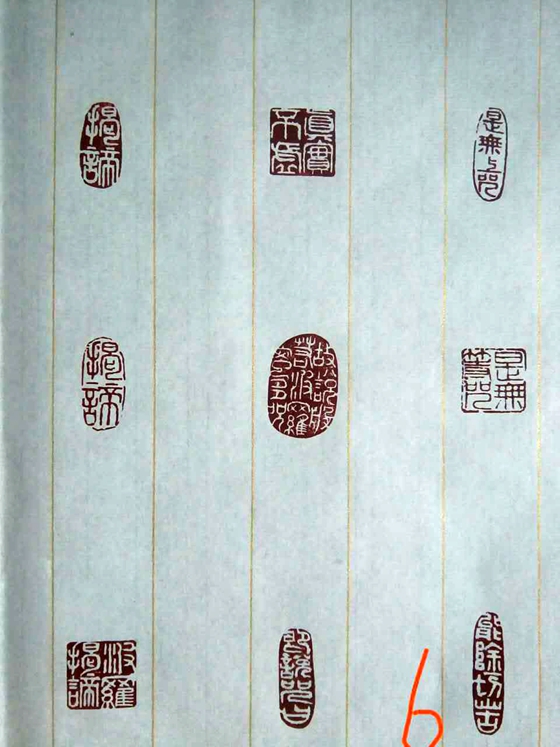 是無上咒
是無等等咒
能除一切苦
真實不虛
故說般若波羅蜜多咒
即說咒曰
揭諦
揭諦
波羅揭諦
6